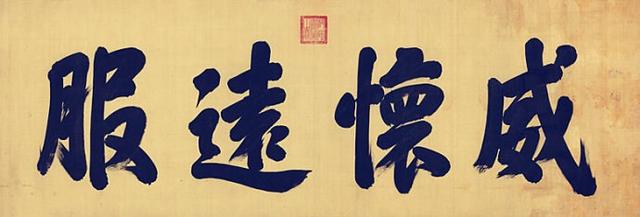 威懷遠服